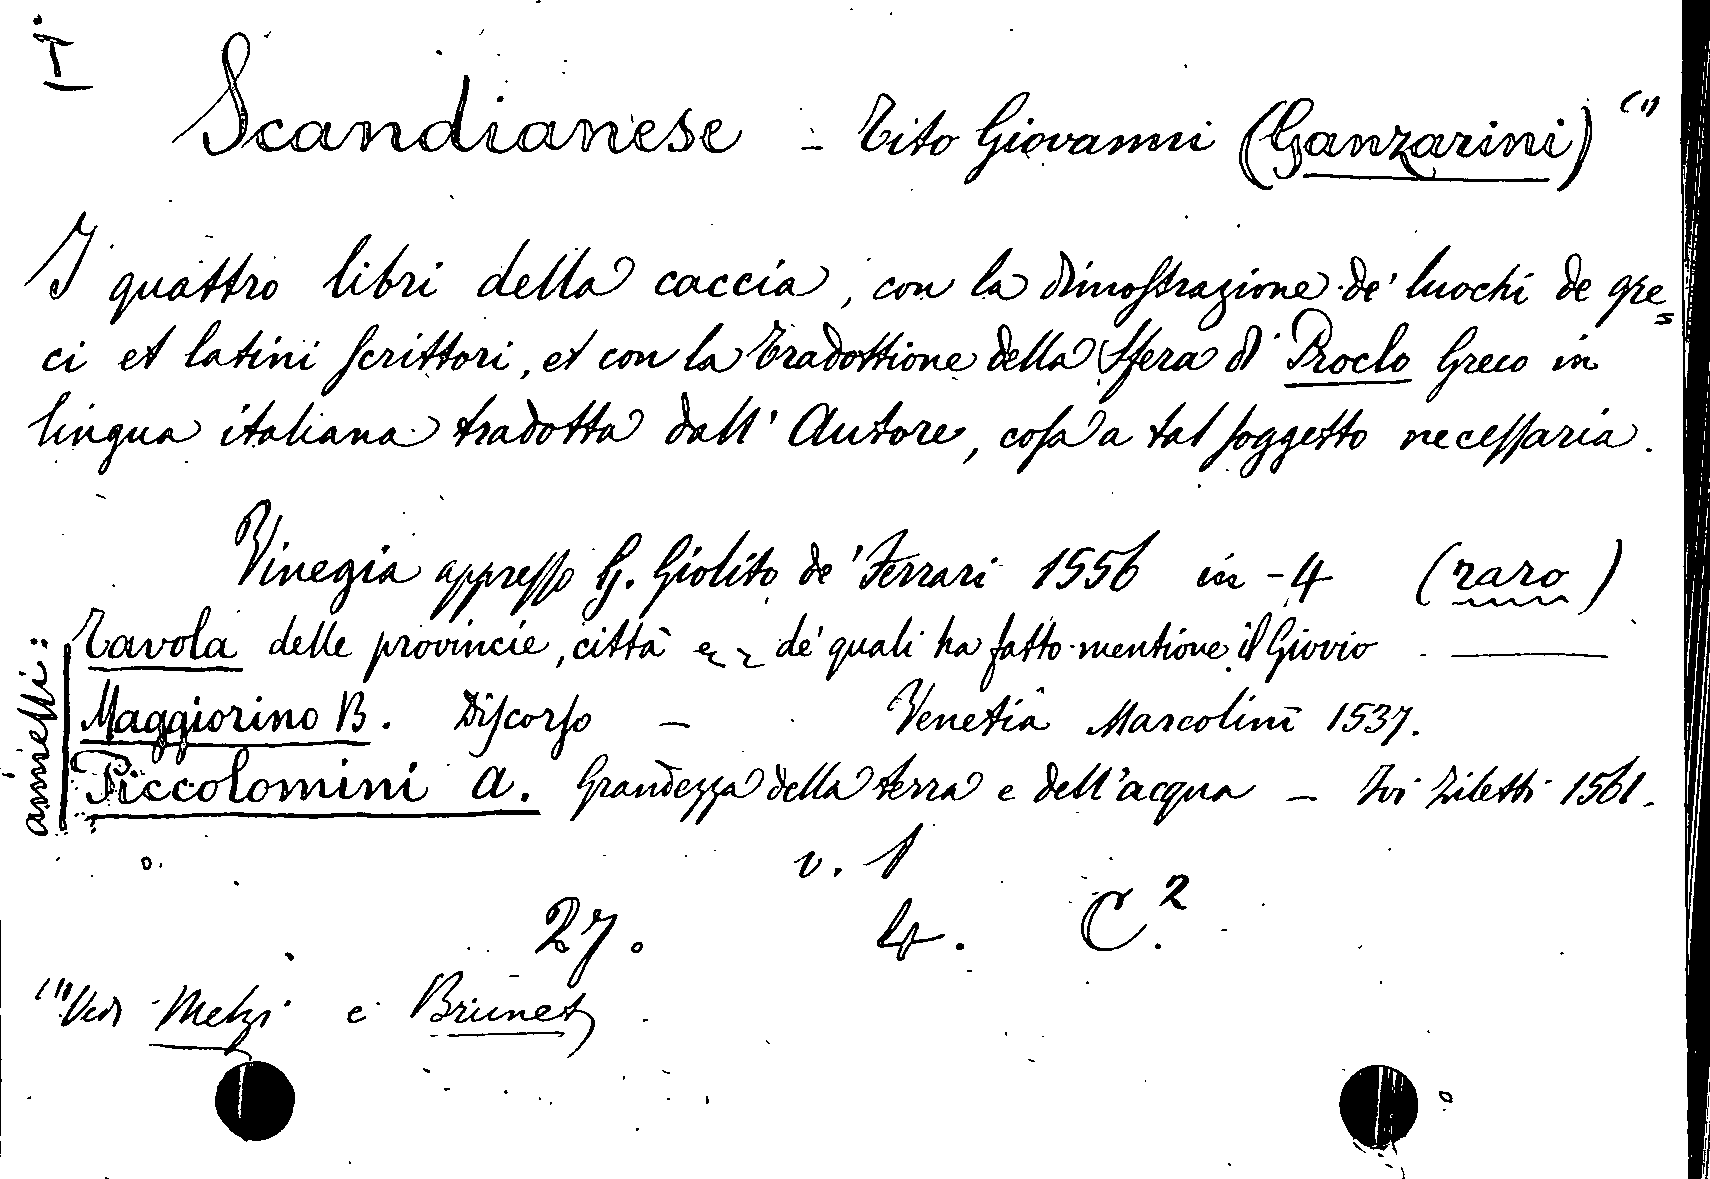 I-I.
Scandianese - Tito Giovanni (Ganzarini) (1)
I quattro libri della caccia, con la dimoſtrazione de' luochi de gre=
ci et latini ſcrittori, et con la tradottione della Sfera di Proclo Greco in
lingua italiana tradotta dall' Autore, coſa a tal ſoggetto neceſſaria.
Vinegia appreſſo G. Giolito de' Ferrari 1556 in-4 (raro)
anneſſi:
Tavola delle provincie, città de' quali ha fatto mentione il Giovio —
Maggiorino B. Diſcorſo — Venetia Marcolini 1537.
Piccolomini A. Grandezza della terra e dell'acqua — Ivi Ziletti 1561.
v. 1
27. 4. C.2
(1) Vedi Melzi e Brunet